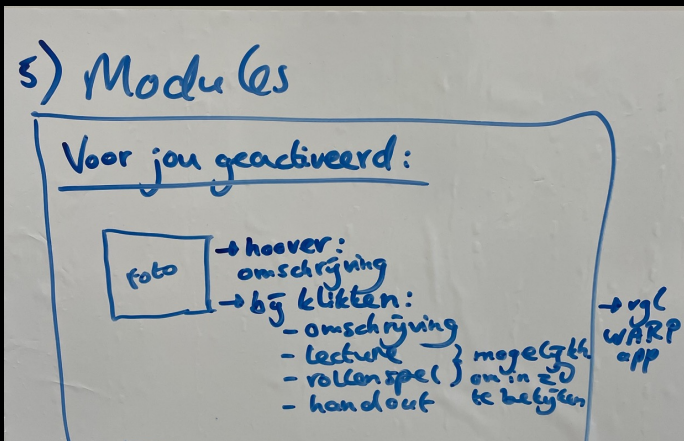 5) Modules
Voor jou geactiveerd:
foto
→ hoover:
omschrijving
→ bij klikken:
- omschrijving
- lecture
- rollenspel
- handout
} mogelijkh
om in
te bekijken
→ vgl
WARP
app